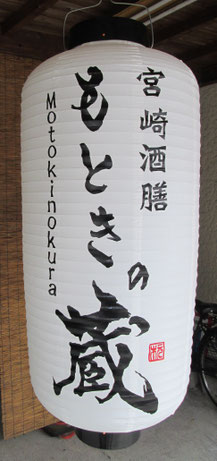 宮崎酒膳
もときの蔵
Motokinokura